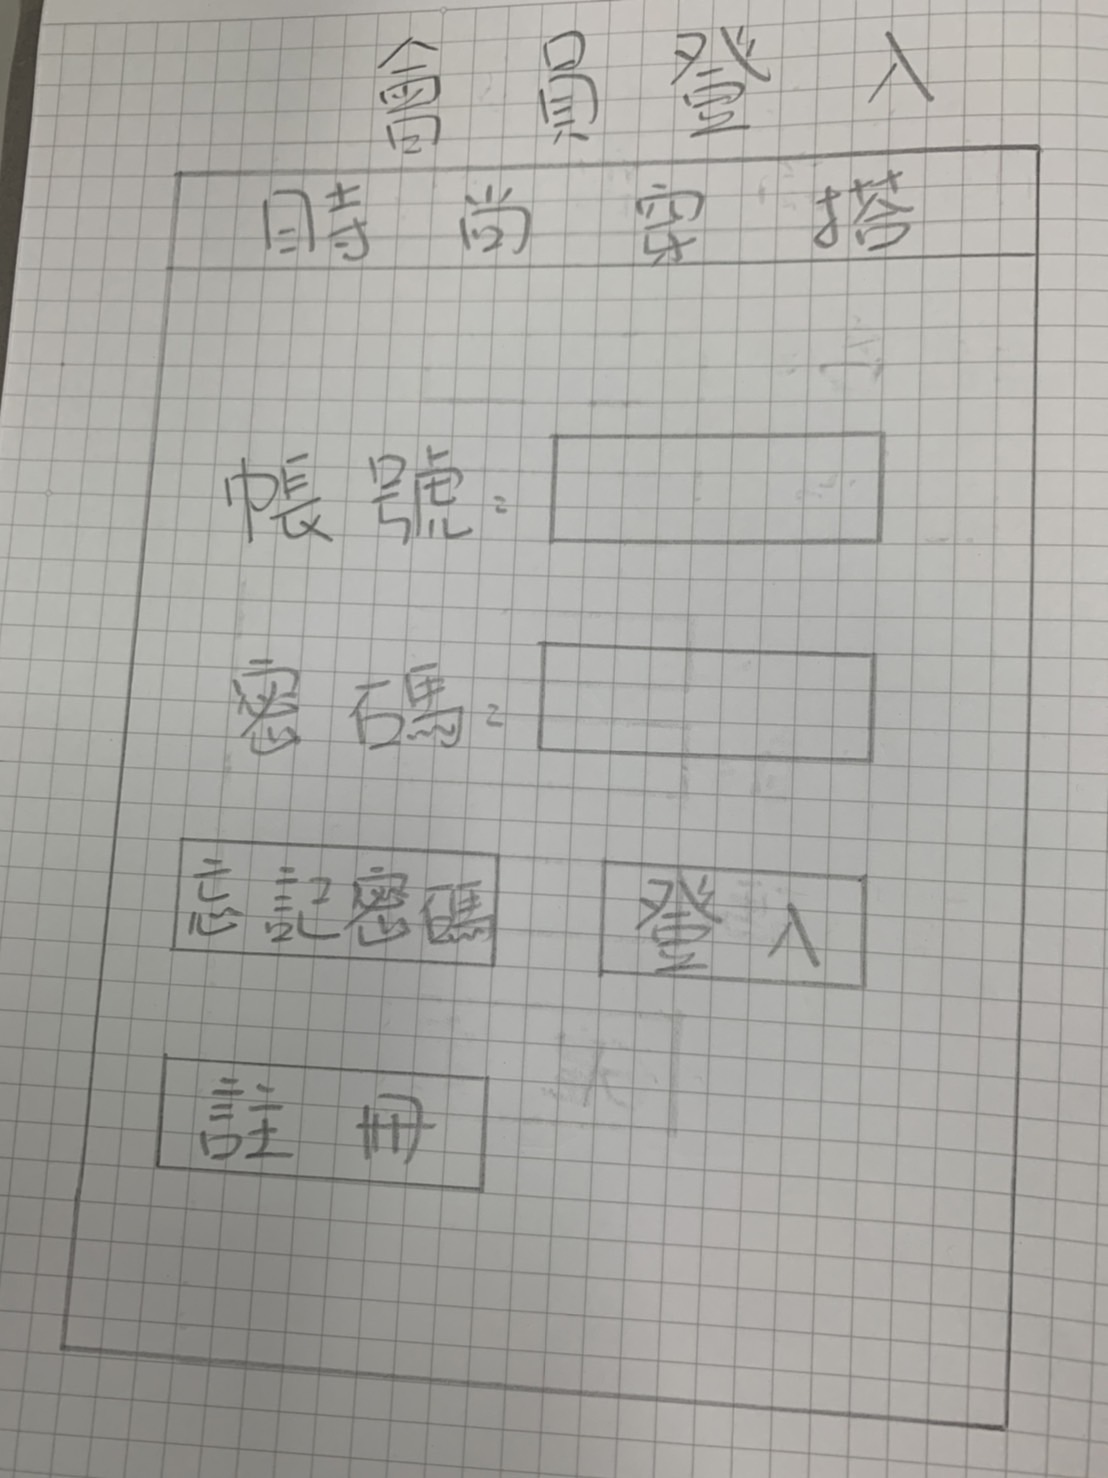 會員登入
時尚穿搭
帳號:
密碼:
忘記密碼 登入
註冊